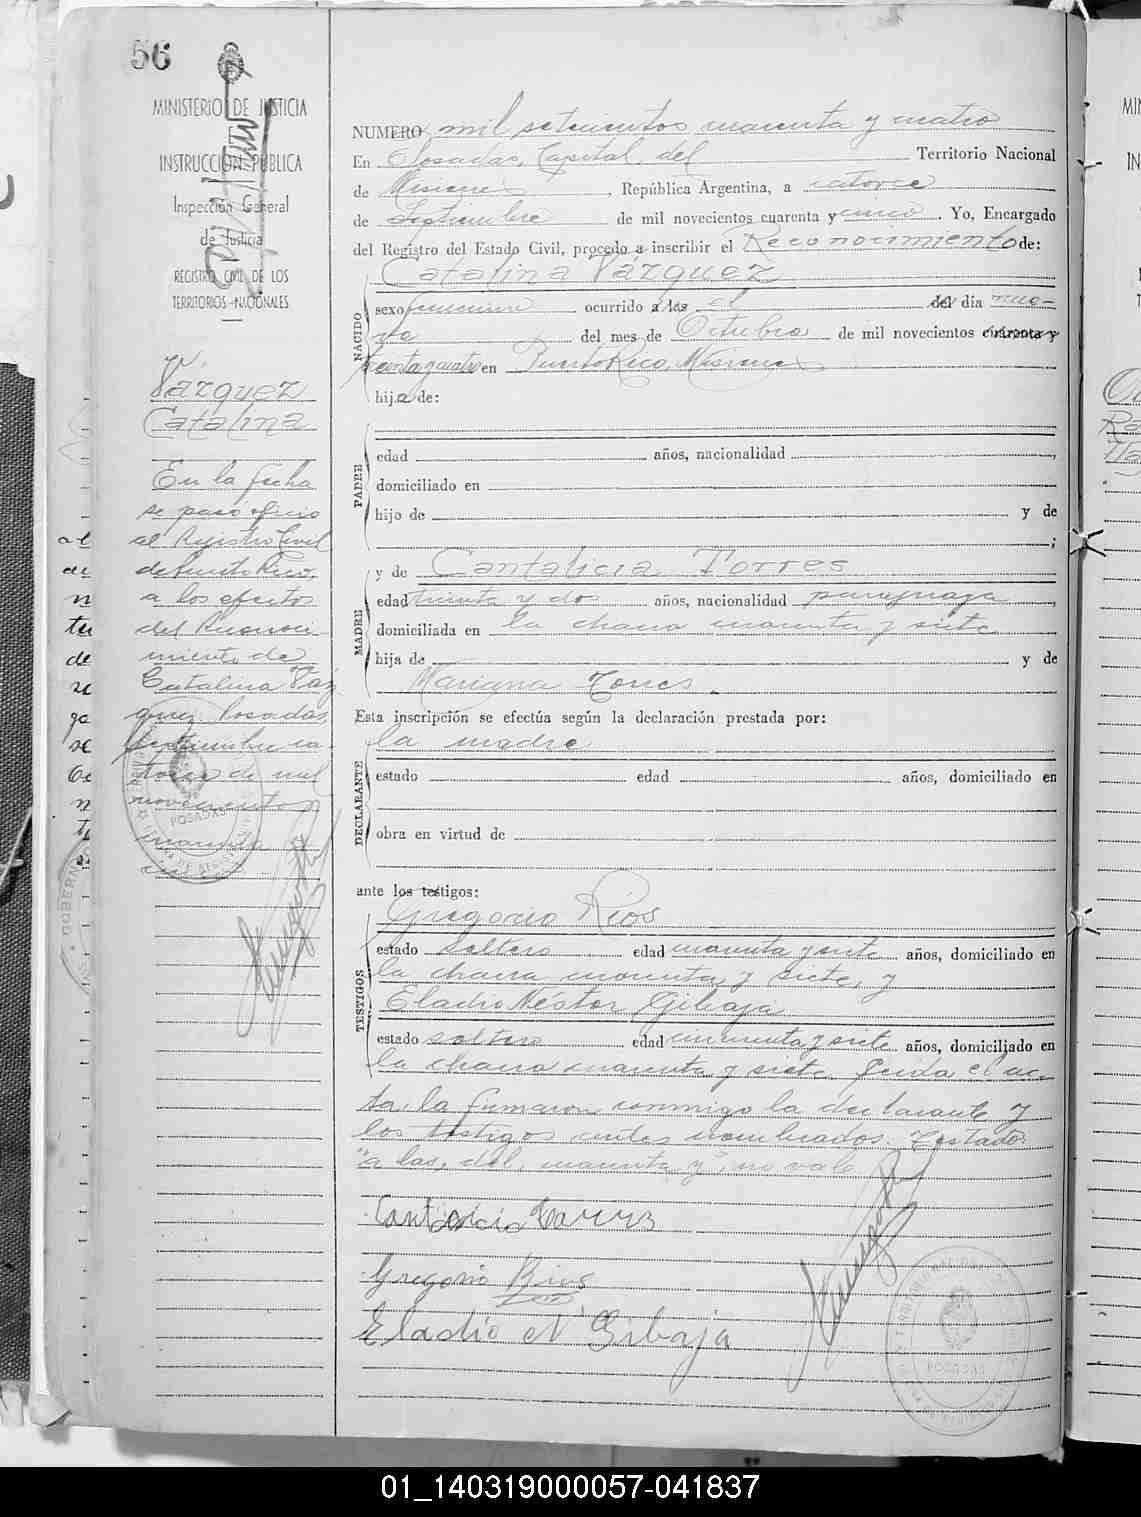 56
MINISTERIO DE JUSTICIA
INSTRUCCION PUBLICA
Inspección General
de Justicia
REGISTRO CIVIL DE LOS
TERRITORIOS NACIONALES
Vázquez
Catalina
En la fecha
se pasó oficio
al Registro Civil
de Puerto Rico,
a los efectos
del Reconoci
miento de
Catalina Váz
quez. Posadas
septiembre ca-
torce de mil
novecientos
cuarenta
NUMERO mil setecientos cuarenta y cuatro
En Posadas, Capital del Territorio Nacional
de Misiones, República Argentina, a catorce
de Septiembre de mil novecientos cuarenta y cinco. Yo, Encargado
del Registro del Estado Civil, procedo a inscribir el Reconocimiento de:
Catalina Vázquez
NACIDO
sexo femenino ocurrido a las el del día nue-
ve del mes de Octubre de mil novecientos cuarenta y
treinta y cuatro en Puerto Rico, Misiones
hija de:
PADRE
edad años, nacionalidad
domiciliado en
hijo de y de
;
MADRE
y de Cantalicia Torres
edad treinta y dos años, nacionalidad paraguaya
domiciliada en la chacra cuarenta y siete
hija de y de
Mariana Torres
Esta inscripción se efectúa según la declaración prestada por:
la madre
DECLARANTE
estado edad años, domiciliado en
obra en virtud de
ante los testigos:
Gregorio Rios
TESTIGOS
estado soltero edad cuarenta y siete años, domiciliado en
la chacra cuarenta y siete, y
Eladio Néstor Gibaja
estado soltero edad cincuenta y siete años, domiciliado en
la chacra cuarenta y siete. Leida el ac-
ta, la firmaron conmigo la declarante y
los testigos antes nombrados. Testado:
"a las, del, cuarenta y", no vale
Cantalicia Torres
Gregorio Rios
Eladio N Gibaja
POSADAS
POSADAS
01_140319000057-041837